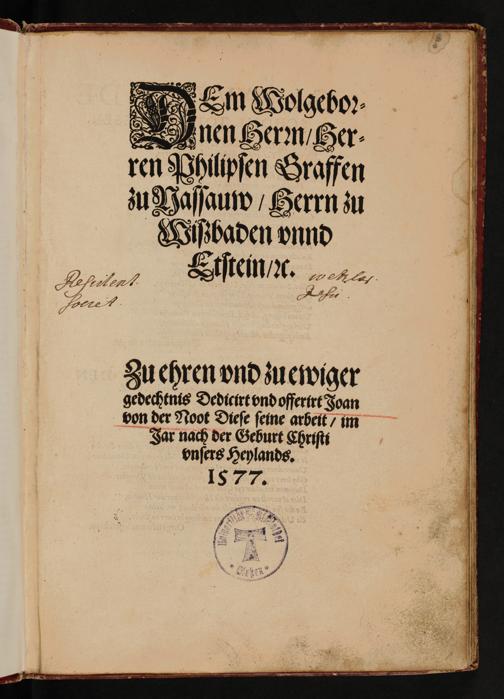 DEm Wolgebor⸗
nen Herrn/Her⸗
ren Philipsen Graffen
zu Nassauw / Herrn zu
Wißbaden vnnd
Etstein/ꝛc.
Resident.
Societ.
Jesu.
Zu ehren vnd zu ewiger
gedechtnis Dedicirt vnd offerirt Joan
von der Noot Diese seine arbeit / im
Jar nach der Geburt Christi
vnsers Heylands.
1577.
Universitäts-Bibliothek
Gießen